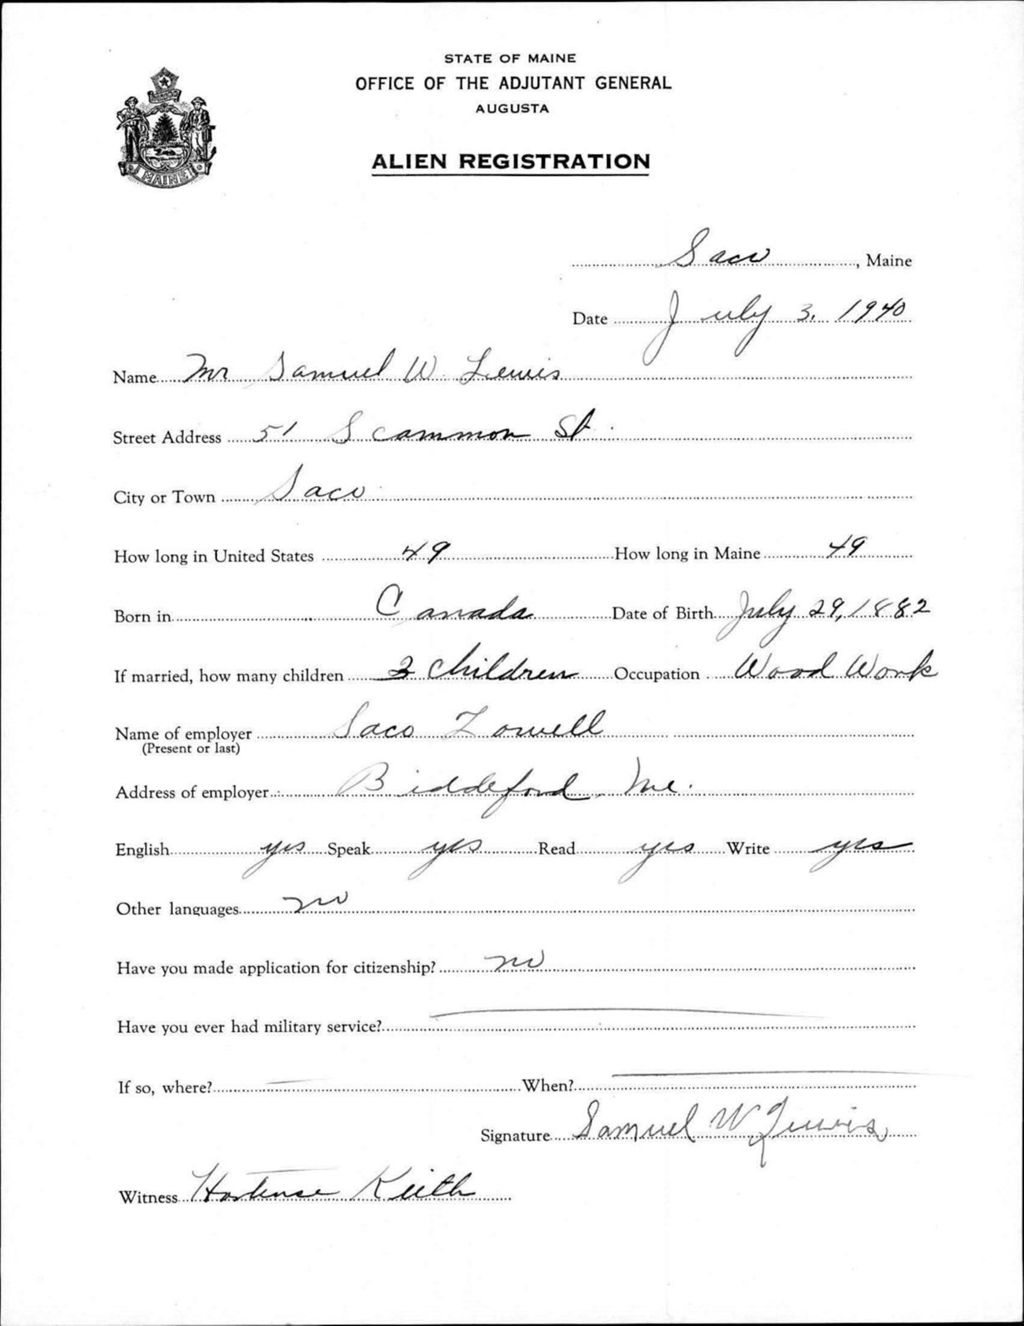 STATE OF MAINE
OFFICE OF THE ADJUTANT GENERAL
AUGUSTA
ALIEN REGISTRATION
MAINE
Saco, Maine
Date July 3, 1940
Name Mr Samuel W. Lewis
Street Address 51 Scammon St.
City or Town Saco
How long in United States 49 How long in Maine 49
Born in Canada Date of Birth July 29, 1882
If married, how many children 3 children Occupation Wood Work
Name of employer Saco Lowell
(Present or last)
Address of employer Biddeford, Me.
English yes Speak yes Read yes Write yes
Other languages no
Have you made application for citizenship? no
Have you ever had military service?
If so, where? When?
Signature Samuel W Lewis
Witness Hortense Keith